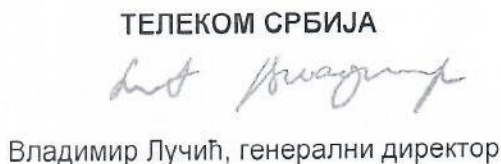 ТЕЛЕКОМ СРБИЈА
Владимир Лучић, генерални директор